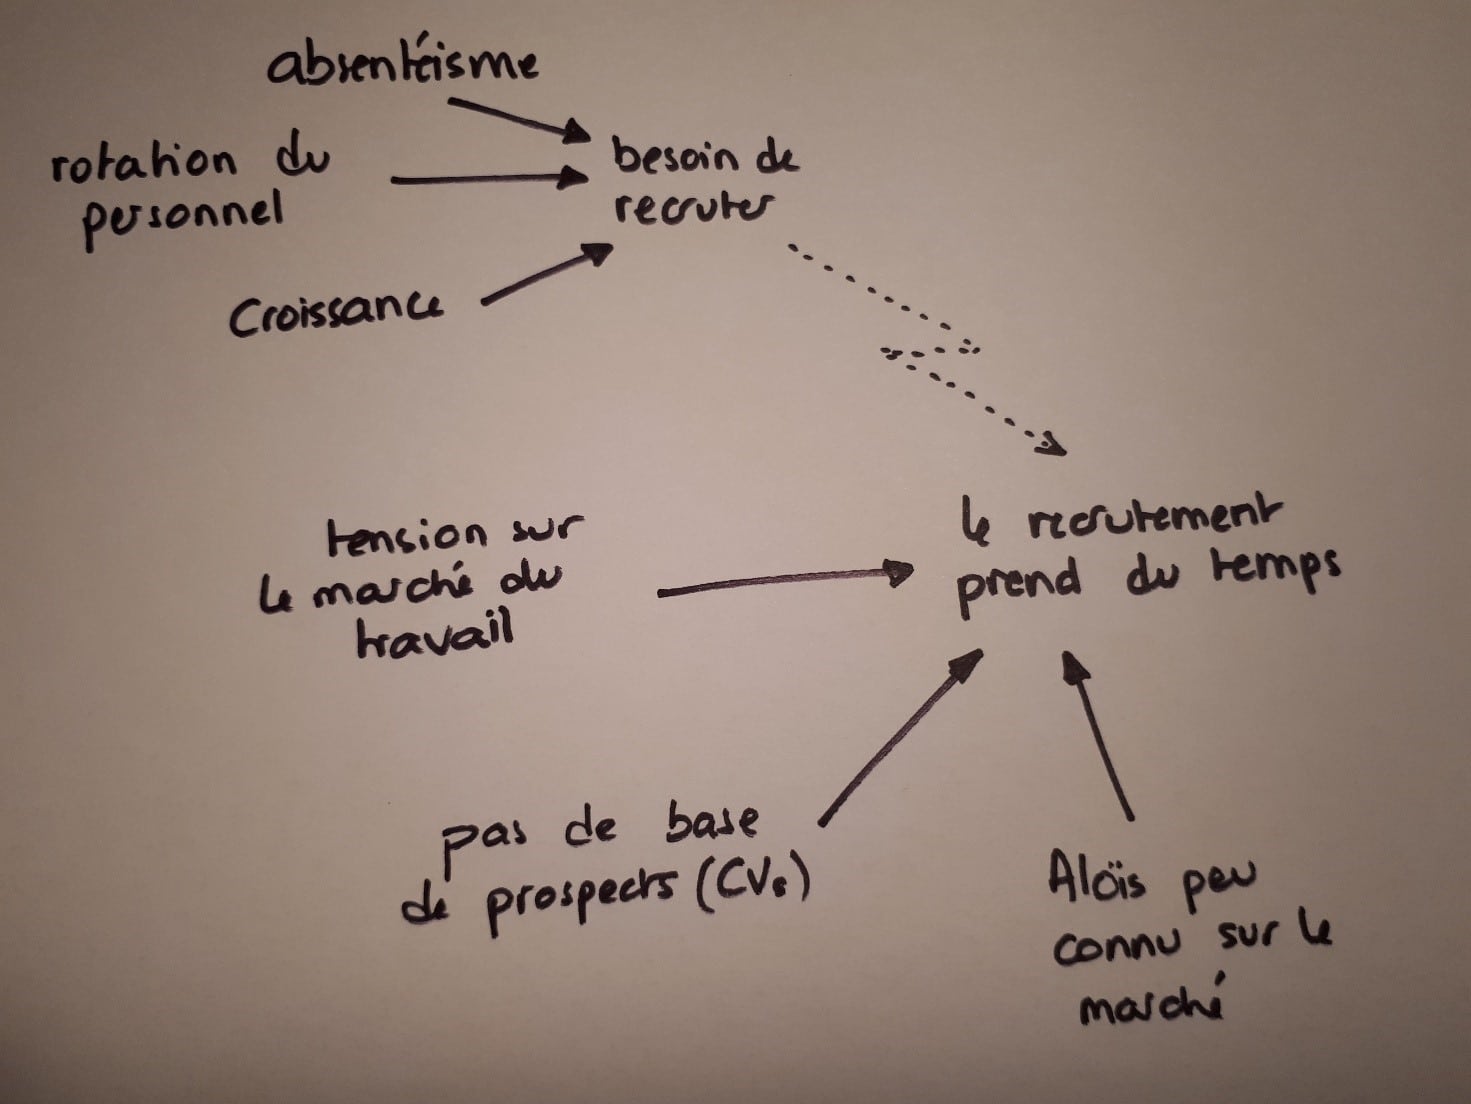 absentéisme
rotation du
personnel
besoin de
recruter
Croissance
tension sur
le marché du
travail
le recrutement
prend du temps
pas de base
de prospects (CVs)
Aloïs peu
connu sur le
marché